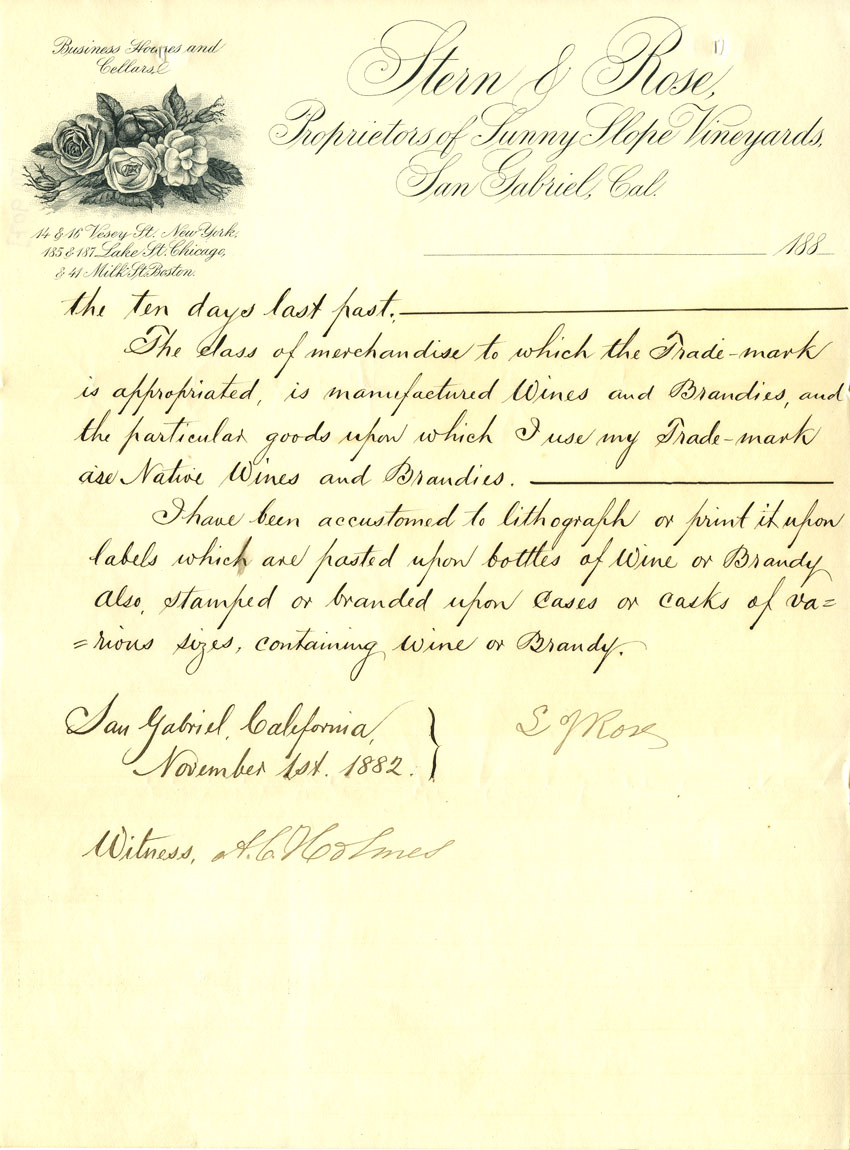 Business Houses and
Cellars
14 & 16 Vesey St. New York,
185 & 187 Lake St. Chicago,
& 41 Milk St. Boston.
Stern & Rose,
Proprietors of Sunny Slope Vineyards,
San Gabriel, Cal.
188
the ten days last past.
The class of merchandise to which the Trade-mark
is appropriated, is manufactured Wines and Brandies, and
the particular goods upon which I use my Trade-mark
are Native Wines and Brandies.
I have been accustomed to lithograph or print it upon
labels which are pasted upon bottles of Wine or Brandy
Also, stamped or branded upon Cases or casks of va=
=rious sizes, containing Wine or Brandy.
San Gabriel, California,
November 1st. 1882.
L J Rose
Witness, A. C. Holmes